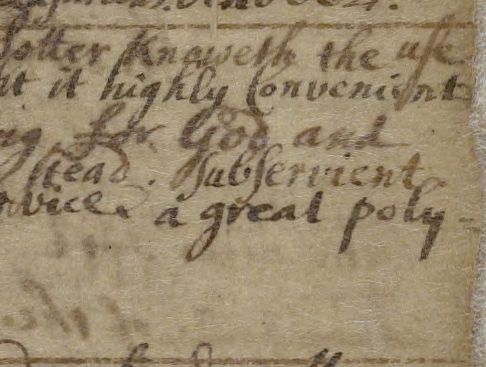 otter knoweth the use
it highly Convenient
for God and
stead. subservient
rvice. a great poly-